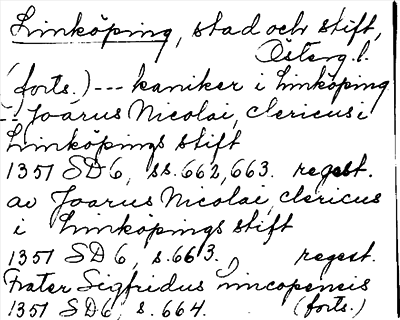 Linköping, stad och stift,
Österg.l.
(forts.) --- kaniker i Linköping
-- Joarus Nicolai, clericus i
Linköpings stift
1351 SD6, ss. 662, 663. regest.
av Joarus Nicolai, clericus
i Linköpings stift
1351 SD6, s. 663. regest.
Frater Sigfridus lincopensis
1351 SD6, s. 664. (forts.)